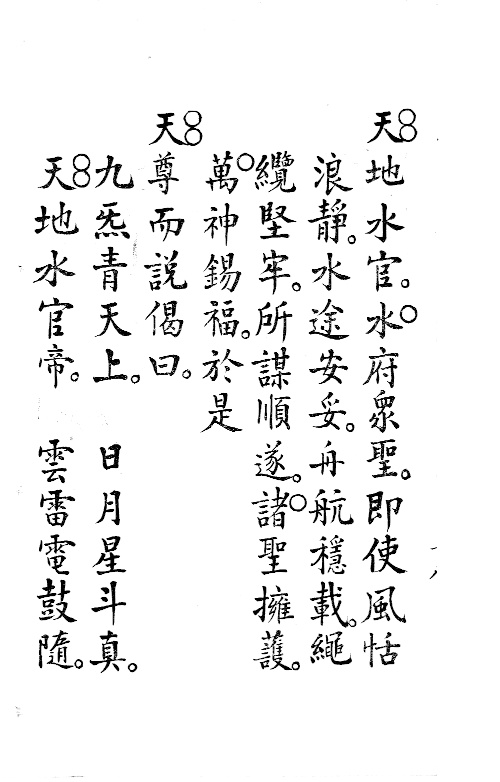 天地水官。水府眾聖。即使風恬
浪靜。水途安妥。舟航穩載。繩
纜堅牢。所謀順遂。諸聖擁護。
萬神錫福。於是
天尊而説偈曰。
九炁青天上。　日月星斗真。
天地水官帝。　雲雷電鼓隨。